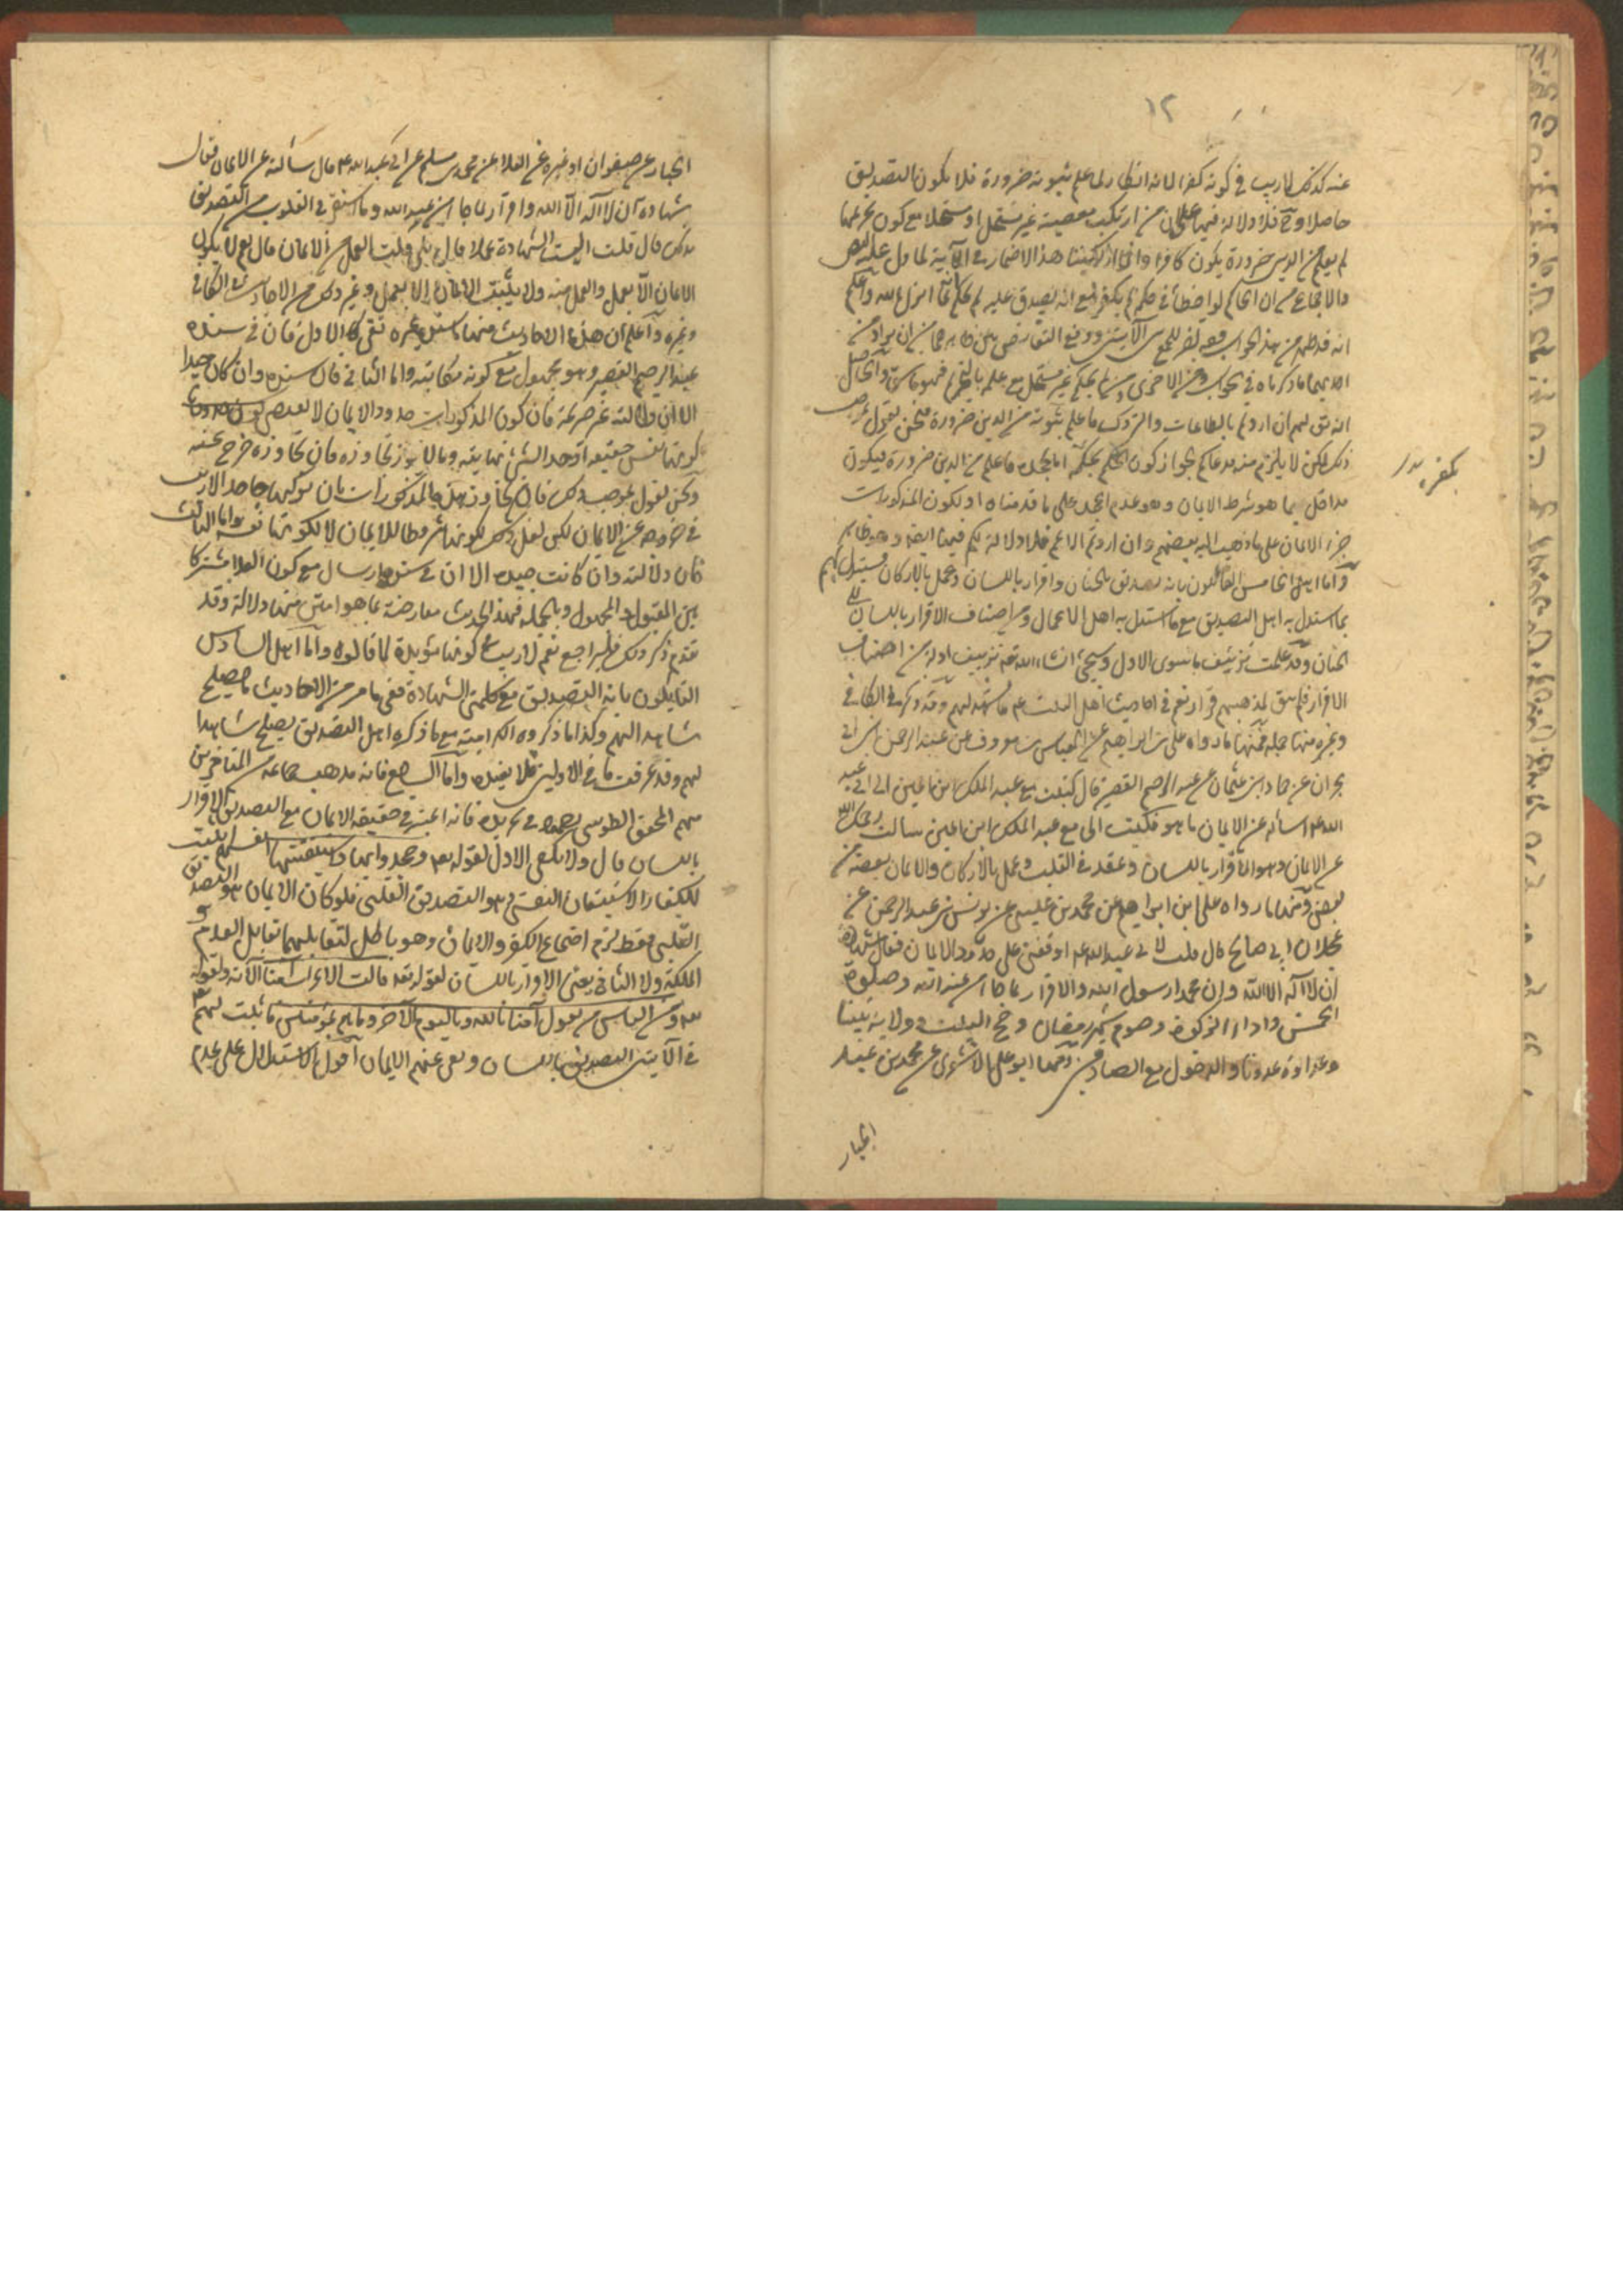 ١٢
عنه كذلك لا ريب في كونه كفرا لانه انكار لما علم ثبوته ضرورة فلا يكون التصديق
حاصلا وح فلا دلالة فيها على ان من ارتكب معصية غير مستحل او مستحلا مع كون تحريمها
لم يعلم من الدين ضرورة يكون كافرا وانما ارتكبنا هذا الاضمار في الآية لما دل عليه النص
والاجماع من ان الحاكم لو اخطأ في حكمه لم يكفر مع انه يصدق عليه لم يحكم بما انزل الله واعلم
انه قد ظهر من هذا الجواب وجه الجمع بين الآيتين ووقع التعارض بين ظاهرهما من ان يراد من
احديهما ما ذكرناه في الجواب ومن الاخرى ومن لم يحكم غير مستحل مع علمه بالتحريم فهو فاسق والحاصل
انه يق لهم ان اردتم بالطاعات والتروك ما علم ثبوته من الدين ضرورة فنحن نقول بموجب
ذلك لكن لا يلزم منه مدعاكم لجواز كون الحكم بكفره اما لجحده ما علم من الدين ضرورة فيكون
بكفره
مداخل بما هو شرط الايمان وهو عدم الجحد على ما قدمناه او لكون المذكورات
جزء الايمان على ما ذهب اليه بعضهم وان اردتم الاعم فلا دلالة لكم فيها ايضا وهو ظاهر
واما اهل الخامس القائلون بانه تصديق بالجنان واقرار باللسان وعمل بالاركان فيستدل لهم
بما استدل به اهل التصديق مع ما استدل به اهل الاعمال ومن اضاف الاقرار باللسان الى
الجنان وقد علمت تزييف ما سوى الاول وسيجئ انشاء الله تعه تزييف ادلة من اضاف
الاقرار فلم يبق لمذهبهم قرار نعم في احاديث اهل البيت عم ما يشهد لهم وقد ذكر في الكافي
وغيره منها جملة فمنها ما رواه على بن ابراهيم عن العباس بن معروف عن عبد الرحمن بن ابي
نجران عن حماد ابن عثمان عن عبد الرحيم القصير قال كتبت مع عبد الملك ابن اعين الى ابي عبد
الله عم اسأله عن الايمان ما هو فكتب الى مع عبد الملك ابن اعين سالت رحمك الله
عن الايمان وهو الاقرار باللسان وعقد في القلب وعمل بالاركان والايمان بعضه من
بعض ومنها ما رواه على ابن ابراهيم عن محمد بن عيسى عن يونس بن عبد الرحمن عن
عجلان ابي صالح قال قلت لابي عبد الله عم اوقفني على حدود الايمان فقال شهادة
ان لا اله الا الله وان محمدا رسول الله والاقرار بما جاء من عند الله وصلوة
الخمس واداء الزكوة وصوم شهر رمضان وحج البيت وولاية نبينا
وعداوة عدونا والدخول مع الصادقين ومنها ابو على الاشعرى عن محمد بن عبد
الجبار
الجبار عن صفوان او غيره عن العلا عن محمد بن مسلم عن ابي عبد الله عم قال سألته عن الايمان فقال
شهادة ان لا اله الا الله واقرار بما جاء من عند الله وما استقر في القلوب من التصديق
بذلك قال قلت اليست الشهادة عملا قال بلى قلت العمل من الايمان قال نعم لا يكون
الايمان الا بعمل والعمل منه ولا يثبت الايمان الا بعمل وغير ذلك من الاحاديث في الكافي
وغيره واعلم ان هذه الاحاديث منها ما سنده غير نقى كالاول فان في سنده
عبد الرحيم القصير وهو مجهول مع كونه مكاتبة واما الثاني فان سنده وان كان جيدا
الا ان دلالته غير صريحة فان كون المذكورات حدود الايمان لا يقتضى
كونها نفس حقيقته اذ حد الشئ نهايته وما لا يجوز تجاوزه فان تجاوزه خرج عنه
ونحن نقول بموجب ذلك فان من تجاوز هذه المذكورات بان تركها جاحدا لا ريب
في خروجه عن الايمان لكن لعل ذلك لكونها شروطا للايمان لا لكونها نفسه واما الثالث
فان دلالته وان كانت جيدة الا ان في سنده ارسال مع كون العلا مشتركا
بين المقبول والمجهول وبالجملة فهذا الحديث معارضة بما هو امتن منها دلالة وقد
تقدم ذكر ذلك فليراجع نعم لا ريب في كونها مؤيدة لما قالوه واما اهل السادس
القايلون بانه التصديق مع كلمتي الشهادة ففى ما مر من الاحاديث ما يصلح
شاهدا لهم وكذا ما ذكروه الكرامية مع ما ذكره اهل التصديق يصلح شاهدا
لهم وقد عرفت ما في الاولين فلا نعيده واما السابع فانه مذهب جماعة من المتاخرين
منهم المحقق الطوسى رحمه الله في تجريده فانه اعتبر في حقيقة الايمان مع التصديق الاقرار
باللسان قال ولا يكفى الاول لقوله تعه وجحدوا بها واستيقنتها انفسهم اثبت
للكفار الاستيقان النفسي وهو التصديق القلبى فلو كان الايمان هو التصديق
القلبى فقط لزم اجتماع الكفر والايمان وهو باطل لتقابلهما تقابل العدم و
الملكة ولا الثاني يعنى الاقرار باللسان لقوله تعه قالت الاعراب آمنا الآية ولقوله
تعه ومن الناس من يقول آمنا بالله وباليوم الآخر وما هم بمؤمنين فاثبت لهم
في الآيتين التصديق باللسان ونفى عنهم الايمان اقول الاستدلال على عدم